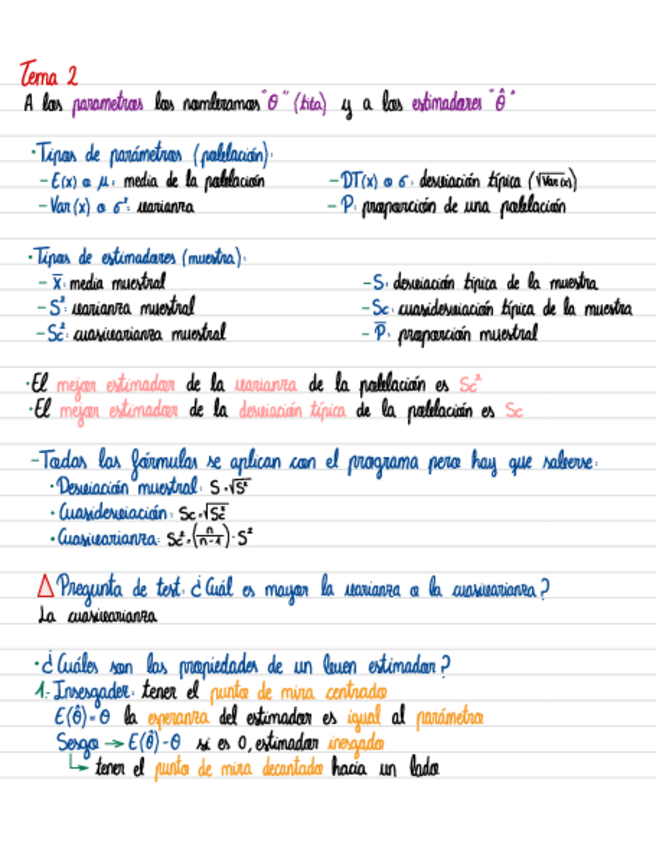 Tema 2
A los parametros los nombramos "θ" (tita) y a los estimadores "θ̂"
·Tipos de parámetros (población):
- E(x) o μ: media de la población
- DT(x) o σ: desviación típica (√Var(x))
- Var(x) o σ²: varianza
- P: proporción de una población
·Tipos de estimadores (muestra):
- x̄: media muestral
- S: desviación típica de la muestra
- S²: varianza muestral
- Sc: cuasidesviación típica de la muestra
- Sc²: cuasivarianza muestral
- P̄: proporción muestral
·El mejor estimador de la varianza de la población es Sc²
·El mejor estimador de la desviación típica de la población es Sc
-Todas las fórmulas se aplican con el programa pero hay que saberse:
·Desviación muestral: S=√S²
·Cuasidesviación: Sc=√Sc²
·Cuasivarianza: Sc²=(n/n-1)·S²
△ Pregunta de test: ¿Cuál es mayor la varianza o la cuasivarianza?
La cuasivarianza
·¿Cuáles son las propiedades de un buen estimador?
1.- Insesgadez: tener el punto de mira centrado
E(θ̂)=θ la esperanza del estimador es igual al parámetro
Sesgo → E(θ̂)-θ si es 0, estimador inesgado
↳ tener el punto de mira decantado hacia un lado